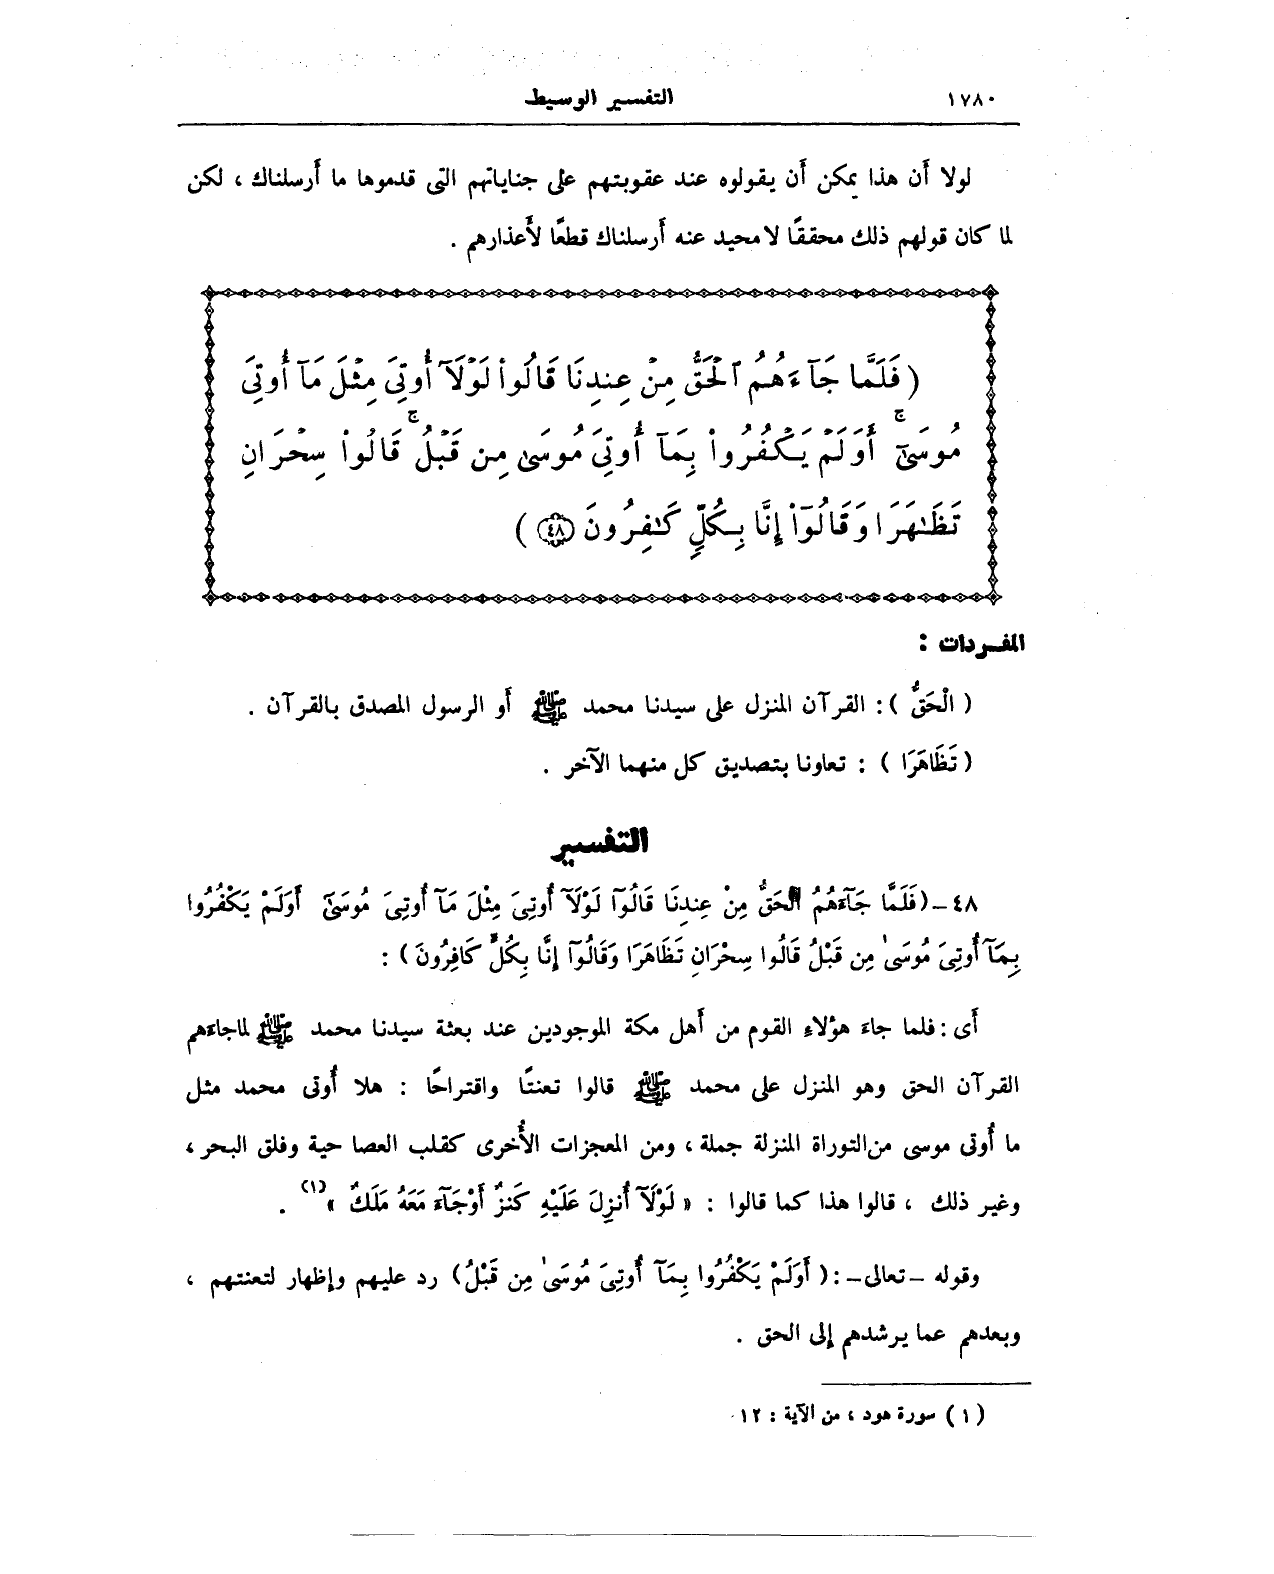 ١٧٨٠ التفسير الوسيط
لولا أن هذا يمكن أن يقولوه عند عقوبتهم على جناياتهم التى قدموها ما أرسلناك ، لكن
لما كان قولهم ذلك محققًا لا محيد عنه أرسلناك قطعًا لأعذارهم .
( فَلَمَّا جَآءَهُمُ ٱلْحَقُّ مِنْ عِندِنَا قَالُوا۟ لَوْلَآ أُوتِىَ مِثْلَ مَآ أُوتِىَ
مُوسَىٰٓ ۚ أَوَلَمْ يَكْفُرُوا۟ بِمَآ أُوتِىَ مُوسَىٰ مِن قَبْلُ ۖ قَالُوا۟ سِحْرَانِ
تَظَـٰهَرَا وَقَالُوٓا۟ إِنَّا بِكُلٍّ كَـٰفِرُونَ ﴿٤٨﴾ )
المفــردات :
( الْحَقُّ ) : القرآن المنزل على سيدنا محمد ﷺ أو الرسول المصدق بالقرآن .
( تَظَاهَرَا ) : تعاونا بتصديق كل منهما الآخر .
التفسير
٤٨ -( فَلَمَّا جَآءَهُمُ الْحَقُّ مِنْ عِندِنَا قَالُوٓا لَوْلَآ أُوتِىَ مِثْلَ مَآ أُوتِىَ مُوسَىٰٓ أَوَلَمْ يَكْفُرُوا
بِمَآ أُوتِىَ مُوسَىٰ مِن قَبْلُ قَالُوا سِحْرَانِ تَظَاهَرَا وَقَالُوٓا إِنَّا بِكُلٍّ كَافِرُونَ ) :
أى : فلما جاءَ هؤلاءِ القوم من أهل مكة الموجودين عند بعثة سيدنا محمد ﷺ لما جاءَهم
القرآن الحق وهو المنزل على محمد ﷺ قالوا تعنتًا واقتراحًا : هلا أُوتى محمد مثل
ما أُوتى موسى من التوراة المنزلة جملة ، ومن المعجزات الأُخرى كقلب العصا حية وفلق البحر ،
وغير ذلك ، قالوا هذا كما قالوا : « لَوْلَآ أُنزِلَ عَلَيْهِ كَنزٌ أَوْجَآءَ مَعَهُ مَلَكٌ »(١) .
وقوله - تعالى - : ( أَوَلَمْ يَكْفُرُوا بِمَآ أُوتِىَ مُوسَىٰ مِن قَبْلُ ) رد عليهم وإظهار لتعنتهم ،
وبعدهم عما يرشدهم إلى الحق .
( ١ ) سورة هود ، من الآية : ١٢